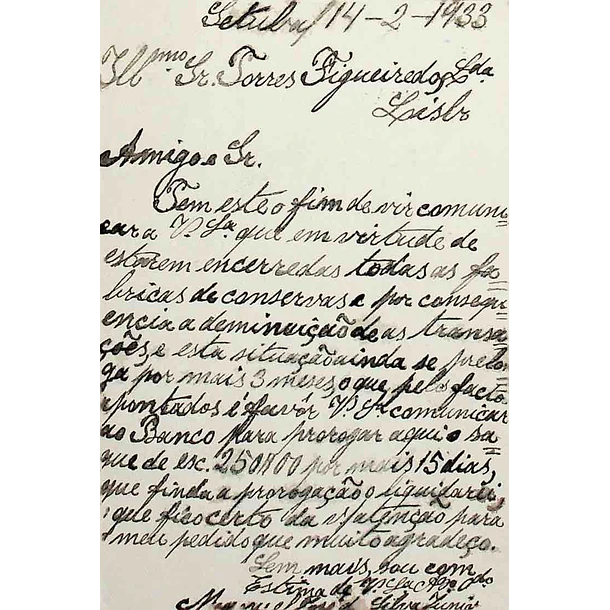 Setubal 14-2-1933
Illmo Sr. Torres Figueiredo, Lda
Lisbr
Amigo e Sr.
Tem este o fim de vir comuni
car a V. Sa. que em virtude de
estarem encerredas todas as fa=
bricas de conservas e por consequ
encia a deminuição de as transa=
ções, e esta situação ainda se prelo
ga por mais 3 meses, o que pelo facto
apontados é favôr V. Sa comunicar
ao Banco para prorogar aqui o sa=
que de esc. 250$00 por mais 15 dias,
que finda a prorogação o liquidarei,
que fico certo da v/ atenção para
meu pedido que muito agradeço.
Sem mais, sou com
Estima de V. Sa
Silva Junior